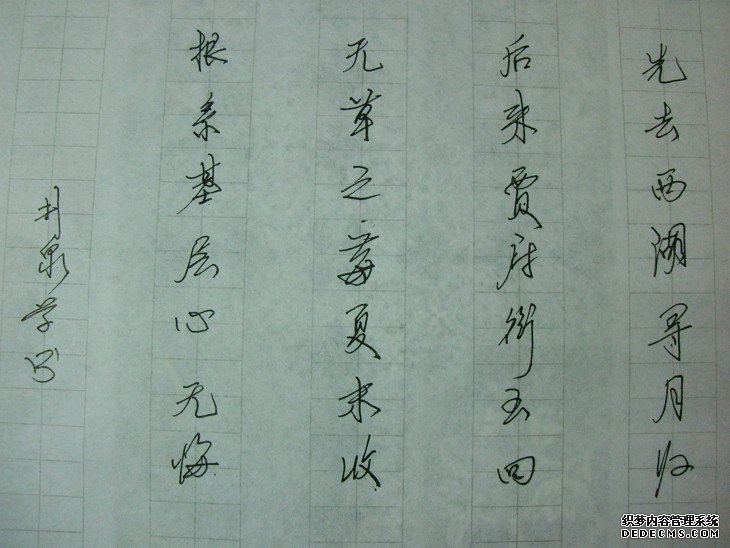 先去西湖寻月归
后来贾府衔玉回
无草之莓夏末收
根系基层心无悔
泉学书
织梦内容管理系统
DEDECMS.COM